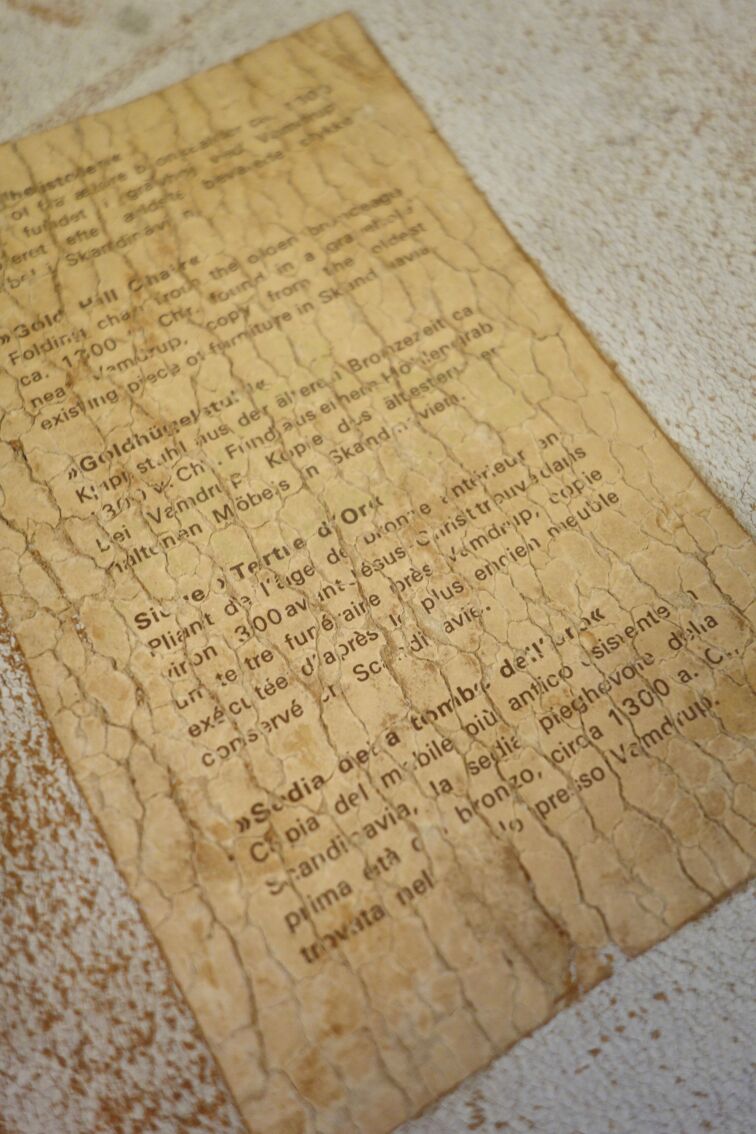 ældre bronzealder ca.
fundet i gravhøj ved Vamdrup
efter ældste bevarede stykke
Skandinavien
»Gold Hill Chair«
Folding chair from the olden bronceage
ca. 1300 Chr. found in a gravehole
near Vamdrup, copy from the oldest
existing piece of furniture in Skandinavia.
»Goldhügelstuhl«
Klappstuhl aus der älteren Bronzezeit ca.
1300 v. Chr. Fund aus einem
bei Vamdrup. Kopie des ältesten
Möbels in Skandinavien.
Tertre d'Or«
Pliant de l'âge de bronze antérieur en
viron 1300 avant Jésus Christ trouvé dans
un tertre funéraire près Vamdrup, copie
exécutée d'après le plus encien meuble
conservé en Scandinavie.
»Sedia della tomba dell'oro«
Copia del mobile più antico esistente in
Scandinavia, la sedia pieghevole della
prima età del bronzo, circa 1300 a. C.,
trovata nel presso Vamdrup.